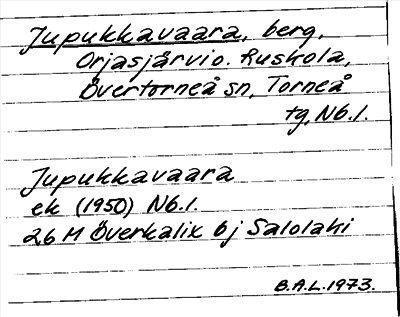 Jupukkavaara, berg,
Orjasjärvi o. Ruskola,
Övertorneå sn, Torneå
tg, Nb.l.
Jupukkavaara
ek (1950) Nb.l.
26 M Överkalix 6j Salolaki
B.A.L. 1973.